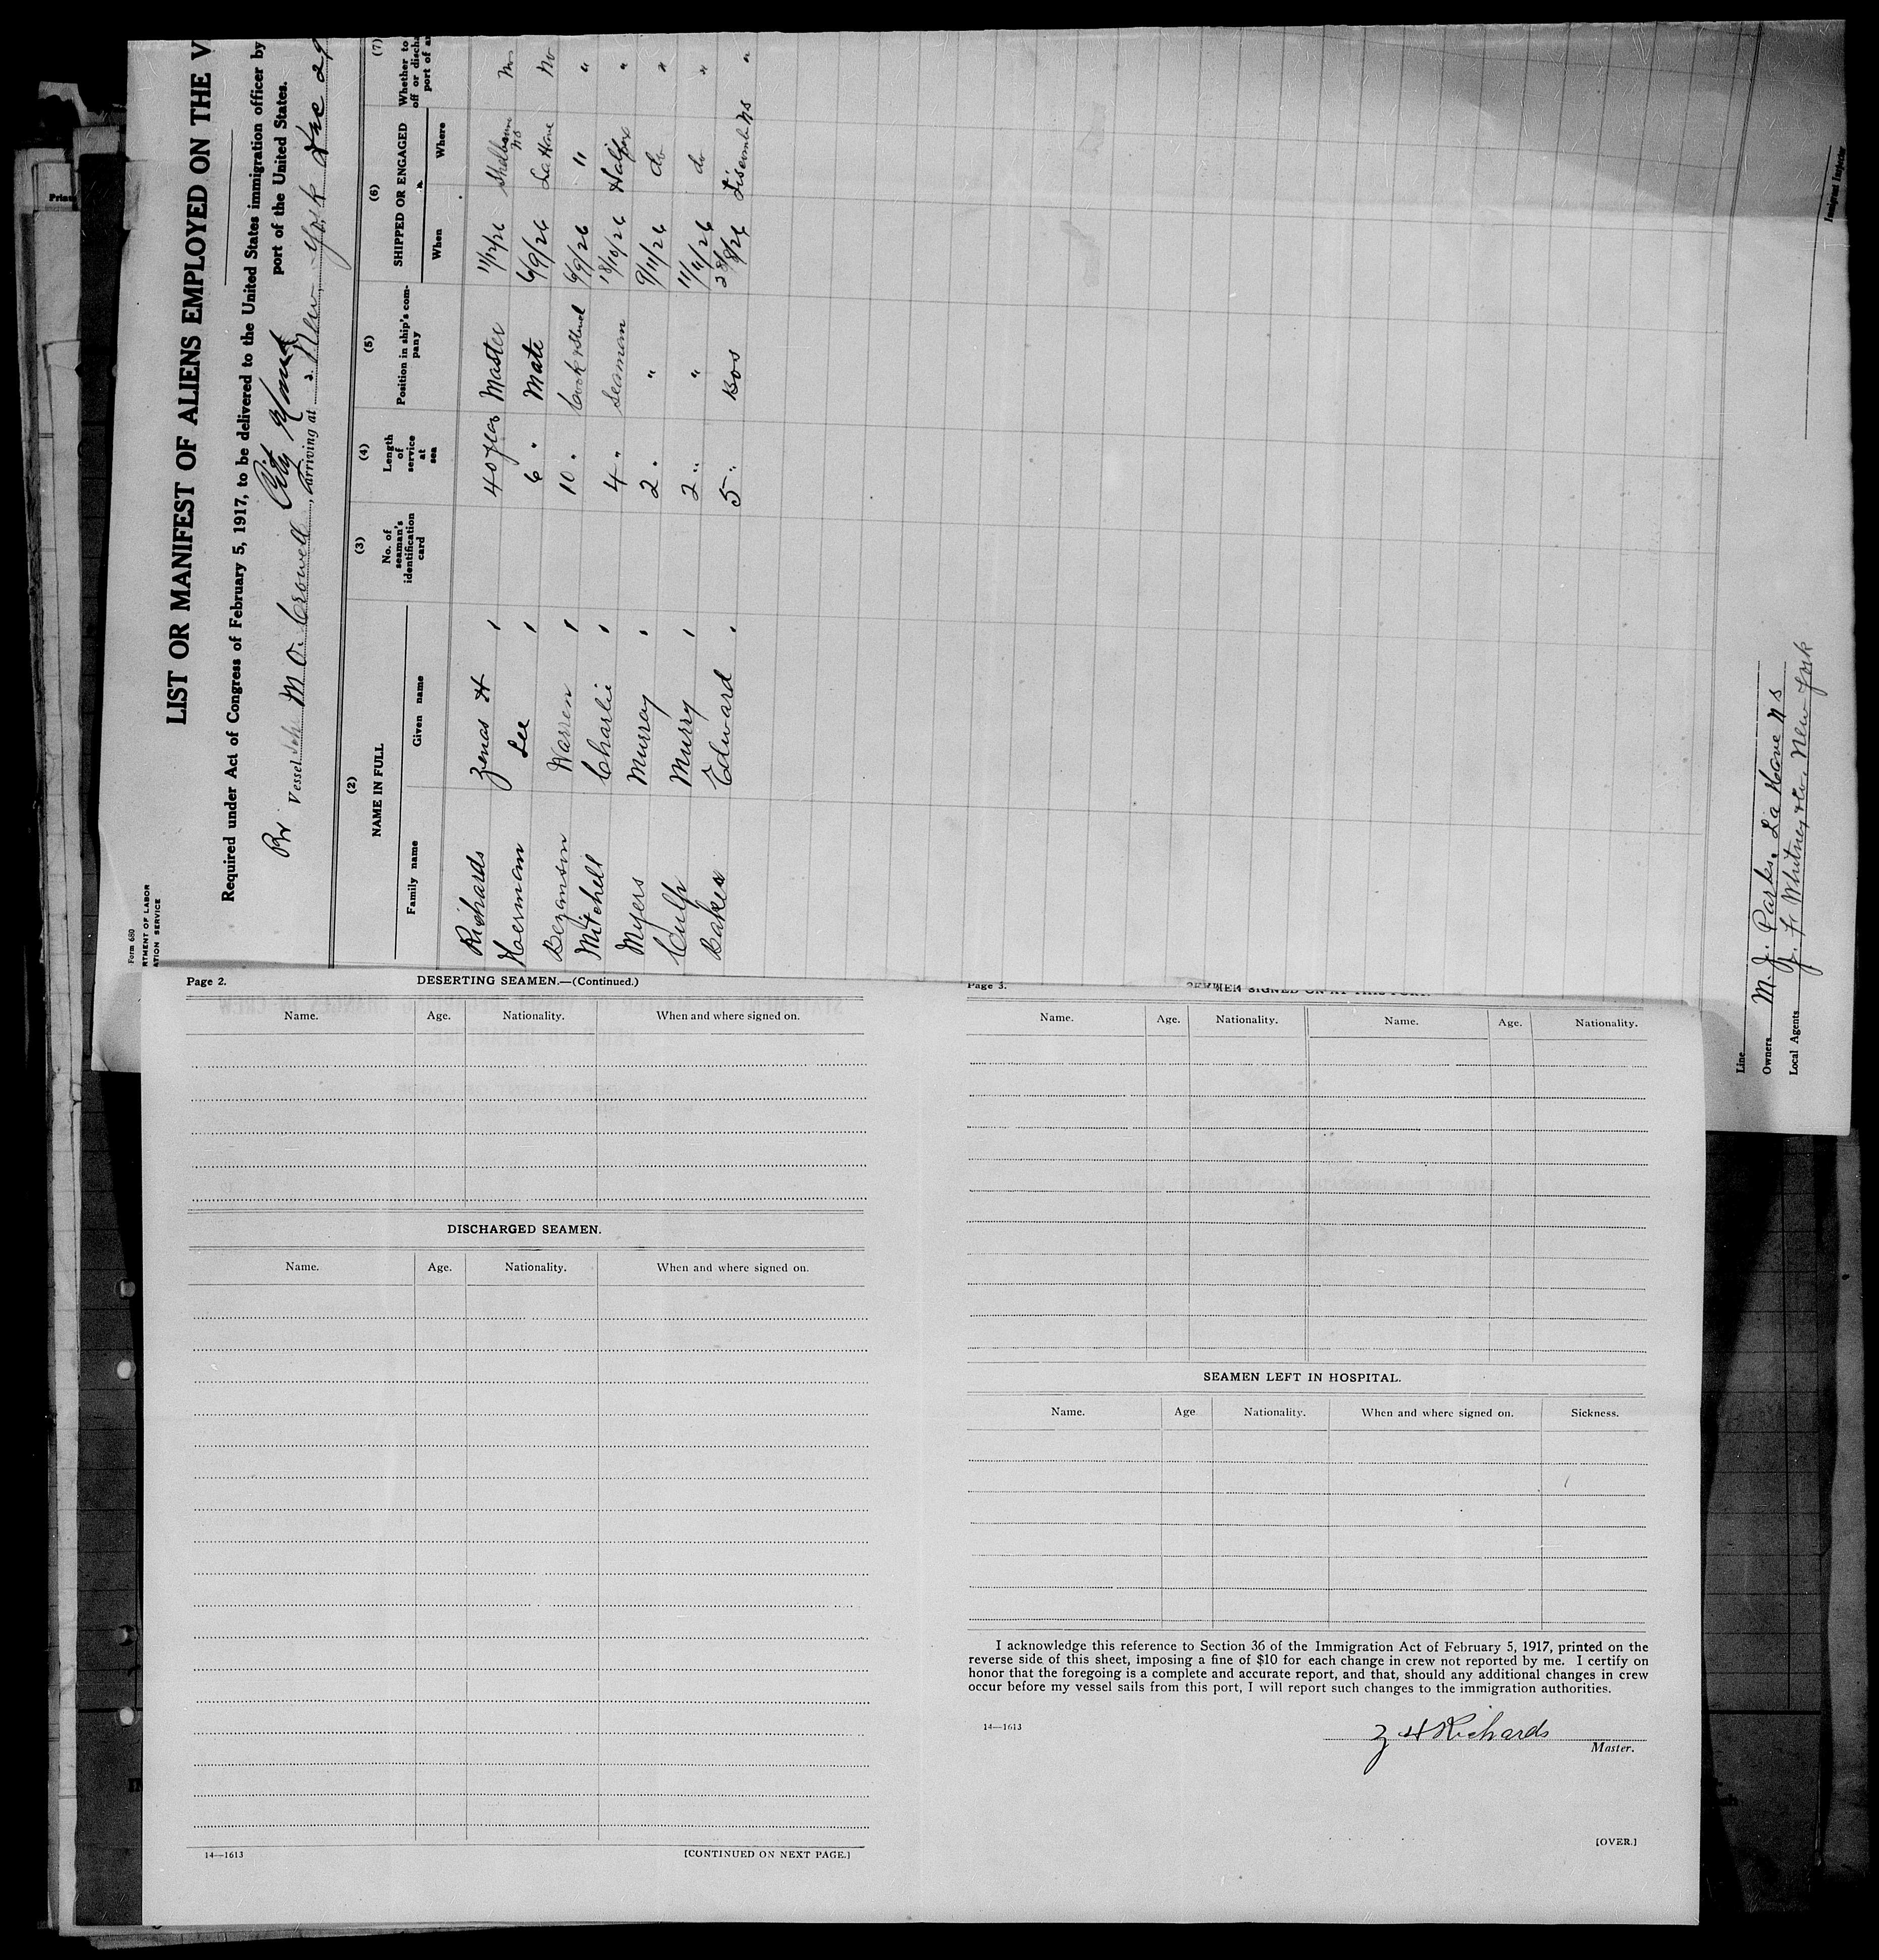 Form 680
RTMENT OF LABOR
ATION SERVICE
LIST OR MANIFEST OF ALIENS EMPLOYED ON THE V
Required under Act of Congress of February 5, 1917, to be delivered to the United States immigration officer by
port of the United States.
Br Vessel Sch M O. Crowell, arriving at New York Dec 29
(2) (3) (4) (5) (6) (7)
NAME IN FULL
Family name Given name
No. of seaman's identification card
Length of service at sea
Position in ship's company
SHIPPED OR ENGAGED
When Where
Whether to
off or discha
port of a
Richards Zenas H 40 years Master 11/12/26 Shelburne NS No
Lee 6 " Mate 6/9/26 LaHave No
Bezanson Warren 10 " Cook 6/9/26 " "
Mitchell Charlie 4 " Seaman 18/10/26 Halifax "
Myers Murray 2 " " 9/11/26 do "
Culp Murry 2 " " 11/11/26 do "
Baker Edward 5 " Bos 28/8/26 Liscomb NS "
Line
Owners M. J. Parks. La Have N S
Local Agents J. F. Whitney & Co. New York
Immigrant Inspector
Page 2.
DESERTING SEAMEN.—(Continued.)
Name. Age. Nationality. When and where signed on.
DISCHARGED SEAMEN.
Name. Age. Nationality. When and where signed on.
14—1613 [CONTINUED ON NEXT PAGE.]
Page 3.
SIGNED ON AT THIS PORT.
Name. Age. Nationality. Name. Age. Nationality.
SEAMEN LEFT IN HOSPITAL.
Name. Age Nationality. When and where signed on. Sickness.
I acknowledge this reference to Section 36 of the Immigration Act of February 5, 1917, printed on the
reverse side of this sheet, imposing a fine of $10 for each change in crew not reported by me. I certify on
honor that the foregoing is a complete and accurate report, and that, should any additional changes in crew
occur before my vessel sails from this port, I will report such changes to the immigration authorities.
14—1613
Z H Richards
Master.
[OVER.]